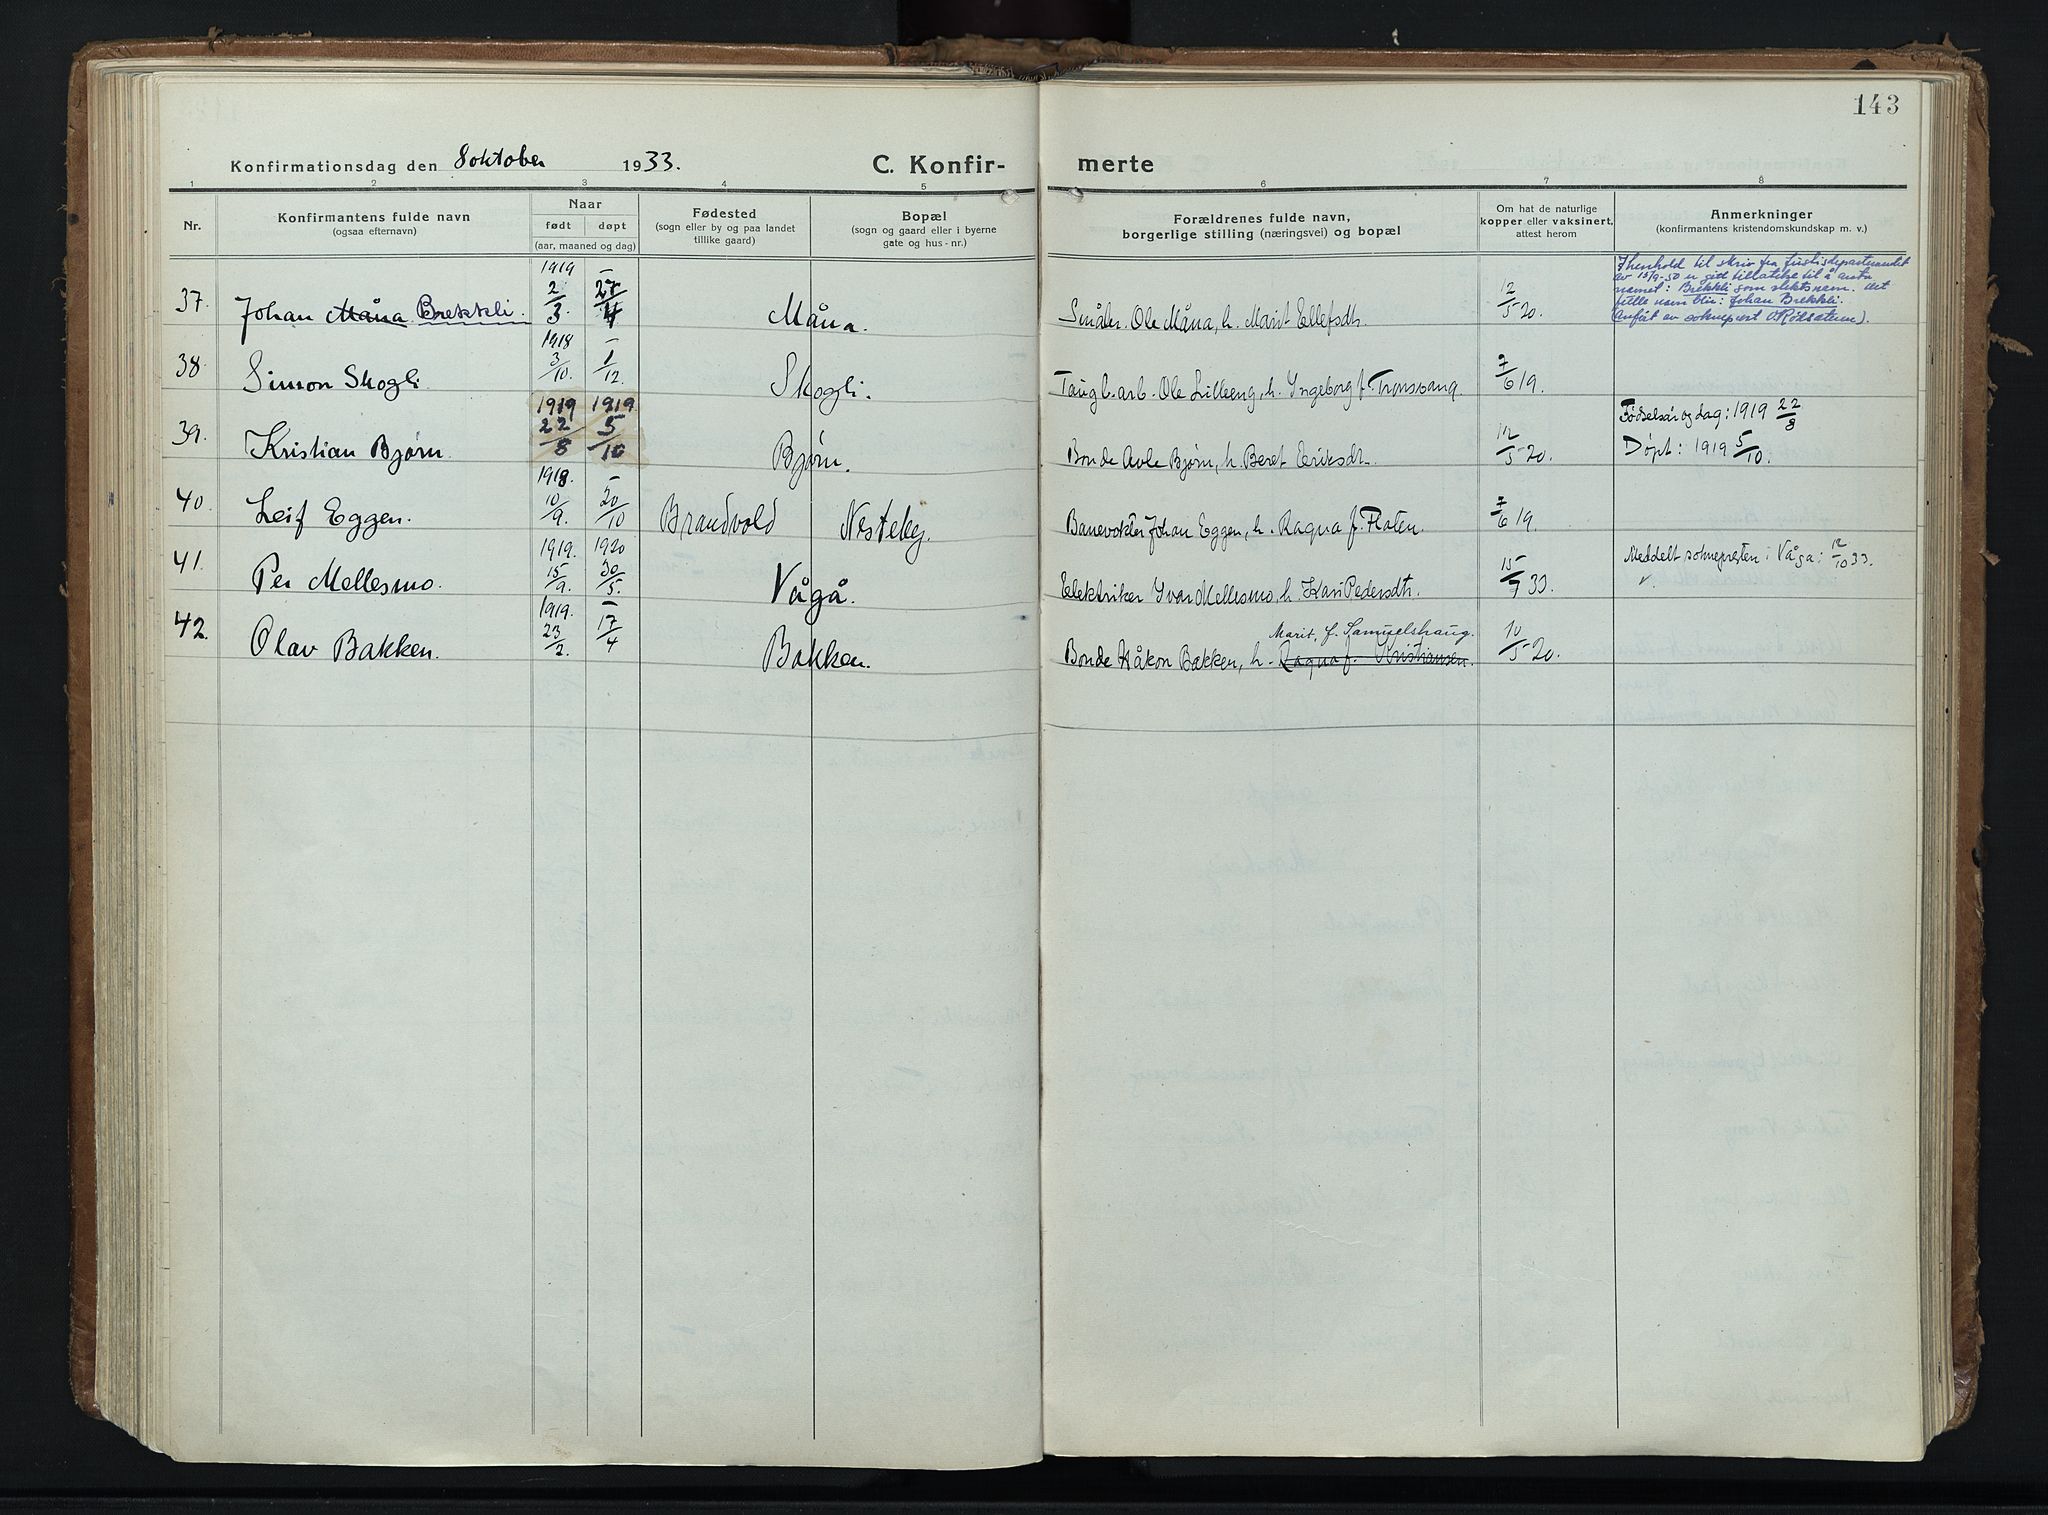 143
Konfirmationsdag den 8 oktober 1933. C. Konfir- merte
1 2 3 4 5 6 7 8
Nr. Konfirmantens fulde navn (ogsaa efternavn) Naar født døpt (aar, maaned og dag) Fødested (sogn eller by og paa landet tillike gaard) Bopæl (sogn og gaard eller i byerne gate og hus-nr.) Forældrenes fulde navn, borgerlige stilling (næringsvei) og bopæl Om hat de naturlige kopper eller vaksinert, attest herom Anmerkninger (konfirmantens kristendomskundskap m. v.)
37. Johan Måna Brekkli. 1919 2/3 – 27/4 Måna. Småbr. Ole Måna, h. Marit Ellefsdt. 12/5 20.
I henhold til skriv fra Justisdepartementet
av 15/9-50 er gitt tillatelse til å
namet: Brekkli som slektsnam. Det
fulle nam blir: Johan Brekkli.
(Anført av sokneprest
38. Simon Skogli 1918 3/10. – 1/12. Skogli. arb. Ole Lilleeng, h. Ingeborg f. Tronsvang. 7/6 19.
39. Kristian Bjørn. 1919 22/8 1919 5/10 Bjørn. Bonde Avle Bjørn, h. Beret Eriksdt. 12/5 20. Fødselsår og dag: 1919 22/8
Døpt: 1919 5/10.
40. Leif Eggen. 1918. 10/9. – 20/10 Brandvold Nesteby. Banevokter Johan Eggen, h. Ragna f. Floten. 7/6 19.
41. Per Mellesmo. 1919. 15/9. 1920 30/5. Vågå. Elektriker Ivar Mellesmo, h. Kari Pedersdt. 15/9 33. Meddelt soknepresten i Vågå: 12/10 33.
v.
42. Olav Bakken. 1919. 23/2. – 17/4 Bakken. Marit, f. Samuelshaug.
Bonde Håkon Bakken, h. Ragna f. Kristiansen. 10/5 20.